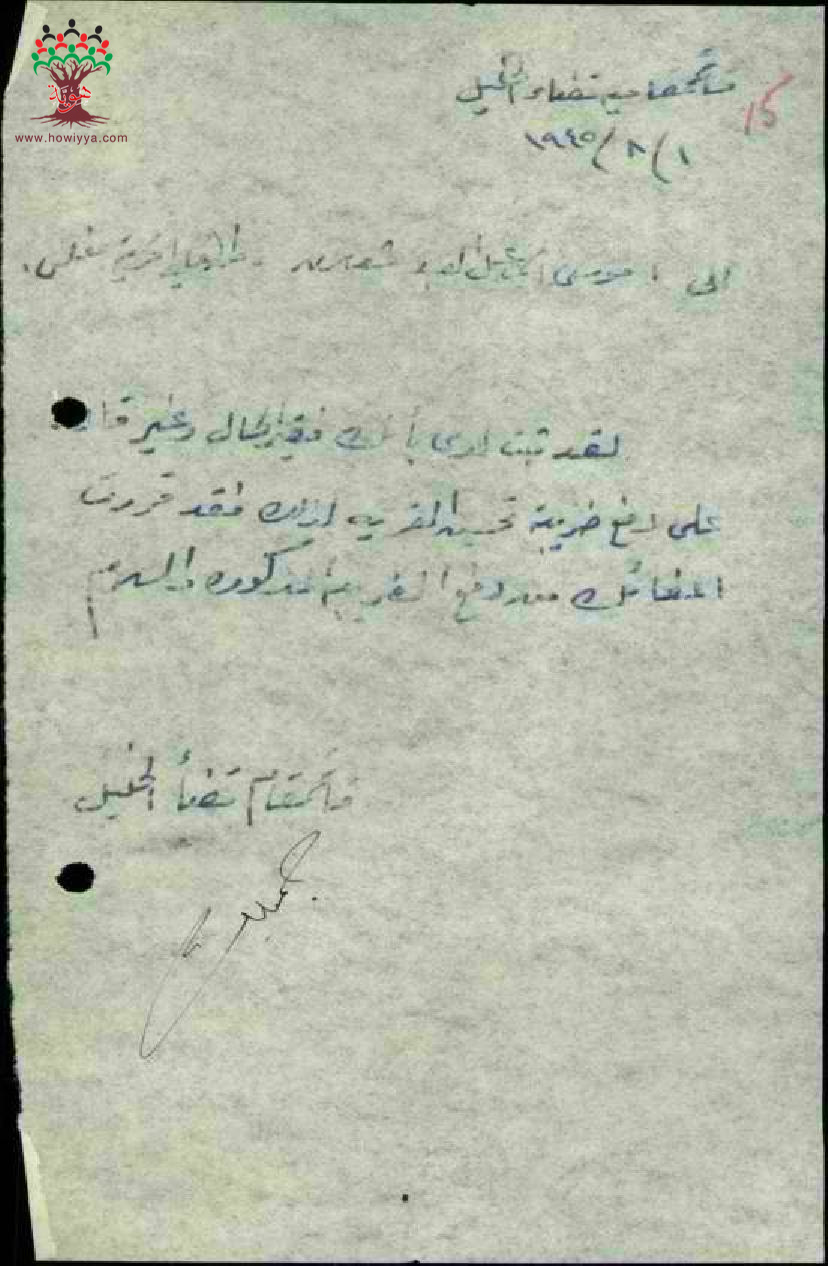 هوية
www.howiyya.com
15
قائمقامية قضاء الخليل
١/٨/١٩٤٥
الى : موسى اسماعيل
لقد ثبت لدي بأنك فقير الحال وغير قادر
على دفع ضريبة تحسين القريه لذلك فقد قررت
اعفائك من دفع الضريبه المذكوره والسلام
قائمقام قضأ الخليل